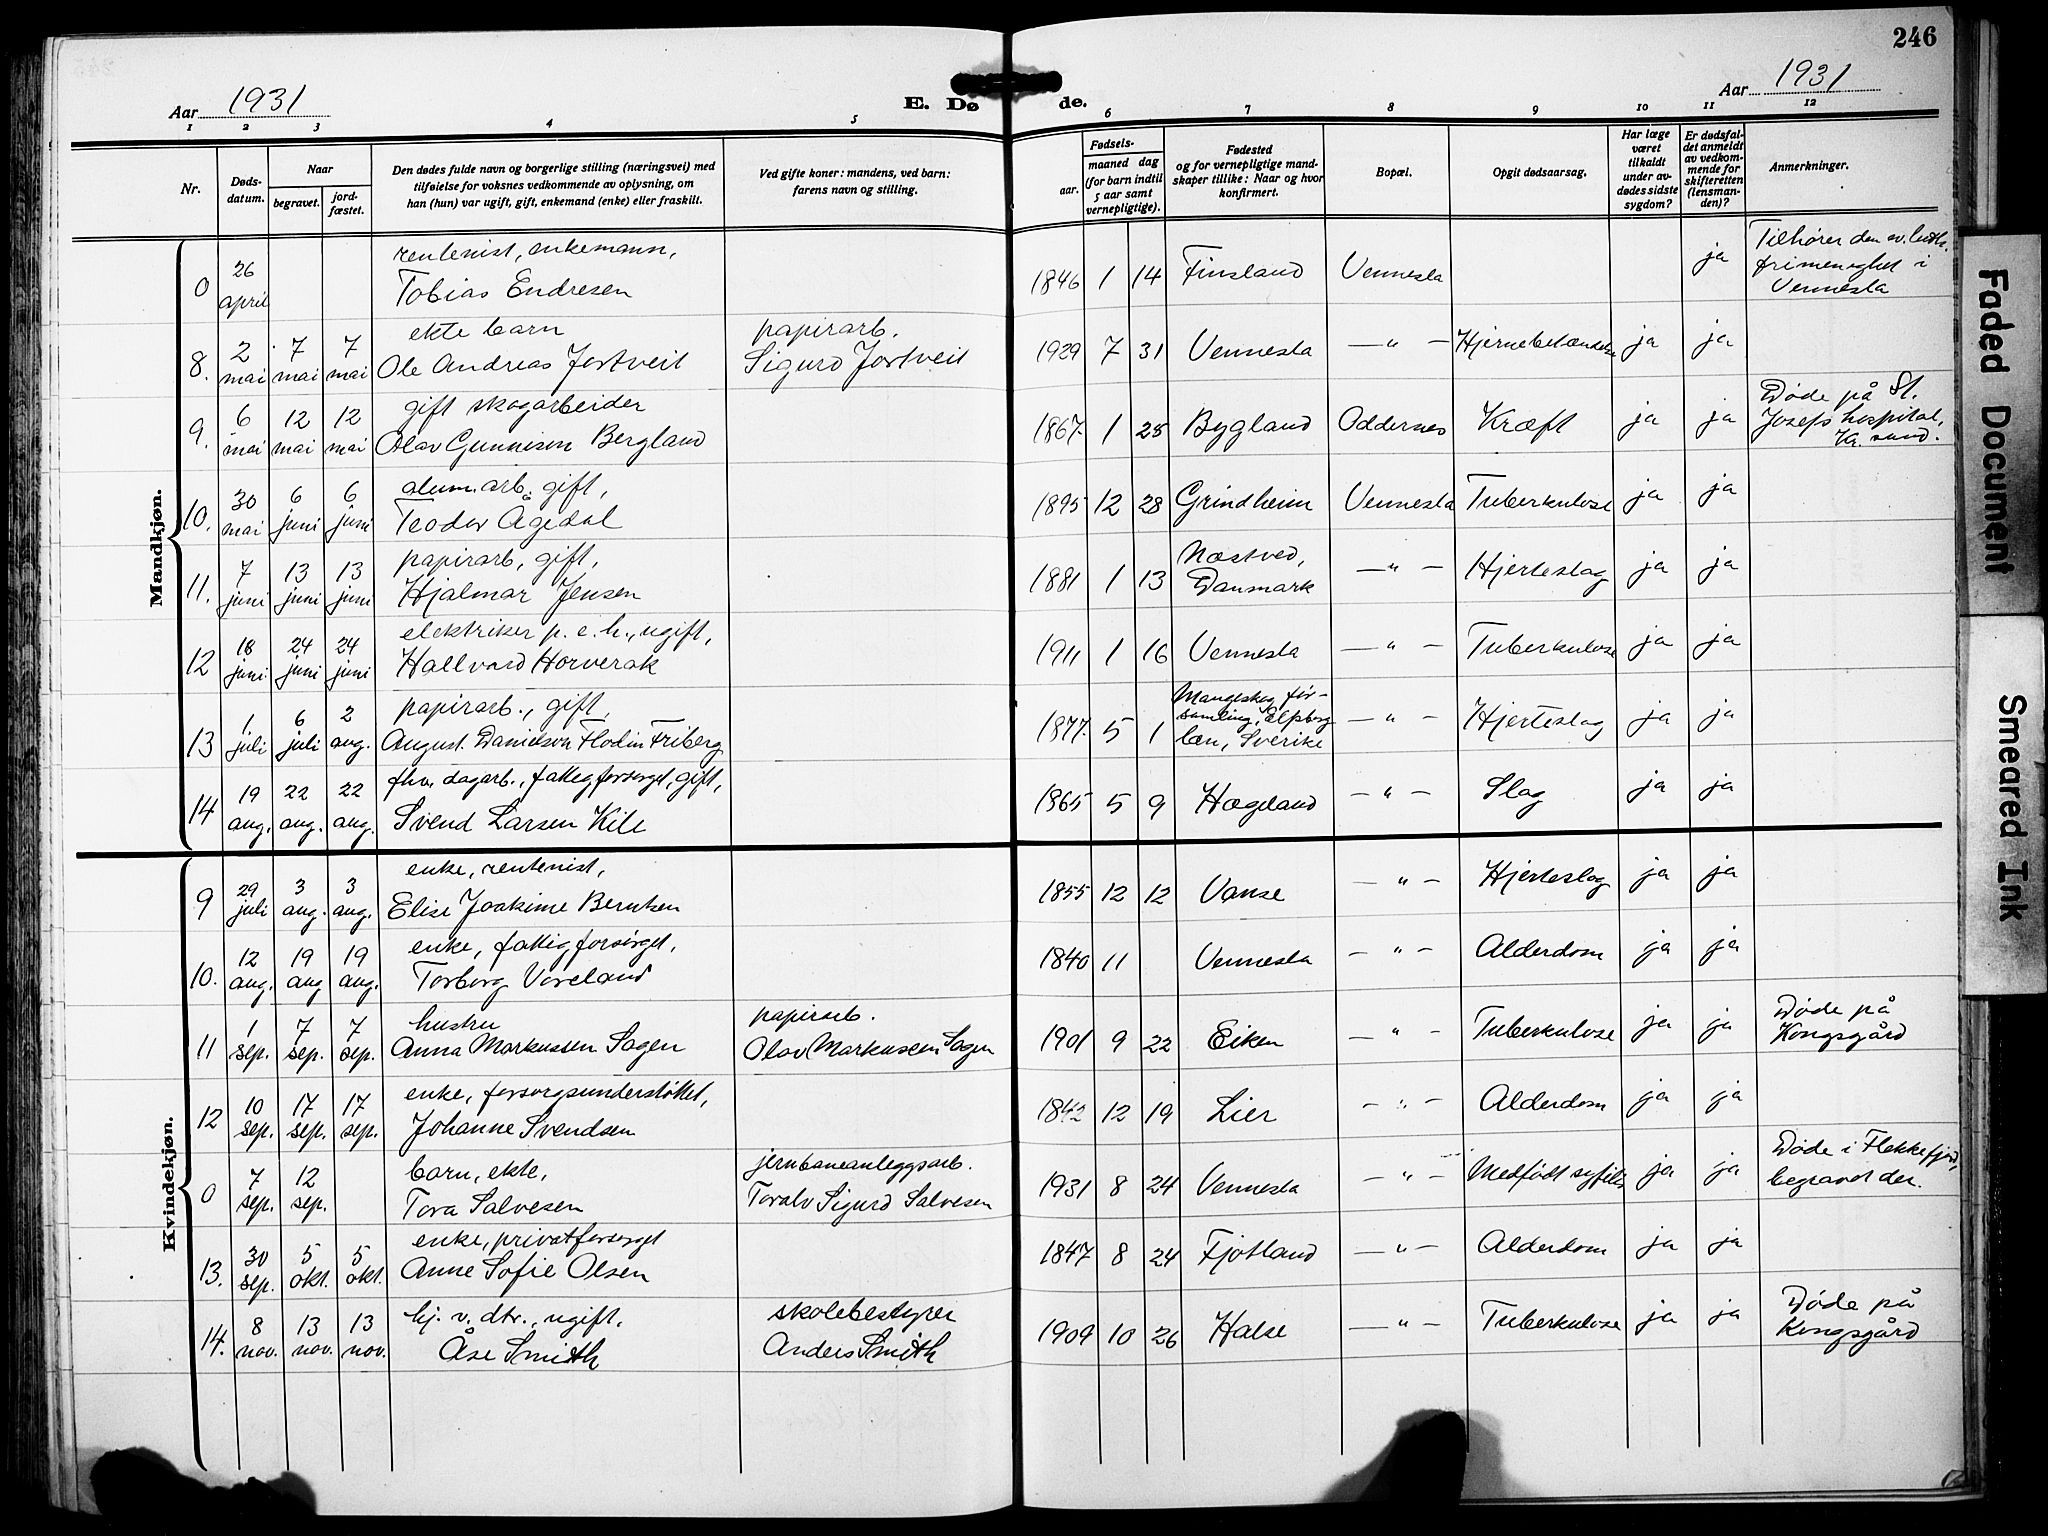 246
Aar 1931
E. Dø
de.
Aar 1931
1 2 3 4 5 6 7 8 9 10 11 12
Nr.
Døds-
datum.
Naar
begravet.
jord-
fæstet.
Den dødes fulde navn og borgerlige stilling (næringsvei) med
tilføielse for voksnes vedkommende av oplysning, om
han (hun) var ugift, gift, enkemand (enke) eller fraskilt.
Ved gifte koner: mandens, ved barn:
farens navn og stilling.
Fødsels-
aar.
maaned dag
(for barn indtil
5 aar samt
vernepligtige).
Fødested
og for vernepligtige mand-
skaper tillike: Naar og hvor
konfirmert.
Bopæl.
Opgit dødsaarsag.
Har læge
været
tilkaldt
under av-
dødes sidste
sygdom?
Er dødsfal-
det anmeldt
av vedkom-
mende for
skifteretten
(lensman-
den)?
Anmerkninger.
Mandkjøn.
rentenist, enkemann,
0 26 april Tobias Endresen 1846 1 14 Finsland Vennesla ja
Tilhører den ev. luth.
frimenighet i
Vennesla
ekte barn papirarb.
8. 2 mai 7 mai 7 mai Ole Andreas Jortveit Sigurd Jortveit 1929 7 31 Vennesla — " — Hjernebetændelse ja ja
gift skogarbeider
9. 6 mai 12 mai 12 mai Olav Gunnison Bergland 1867 1 25 Bygland Oddernes Kræft ja ja
Døde på St.
Josefs hospital,
Kr. sand.
alum. arb. gift,
10. 30 mai 6 juni 6 juni Teodor Ågedal 1895 12 28 Grindheim Vennesla Tuberkulose ja ja
papirarb, gift,
11. 7 juni 13 juni 13 juni Hjalmar Jensen 1881 1 13 Næstved, Danmark — " — Hjerteslag ja ja
elektriker p. e. h., ugift,
12 18 juni 24 juni 24 juni Hallvard Horverak 1911 1 16 Vennesla — " — Tuberkulose ja ja
papirarb., gift,
13 1 juli 6 juli 2 aug. August Danielson Flodin Friberg 1877 5 1 Mangskog för-
samling, Elfsborg
læn, Sverike — " — Hjerteslag ja ja
fhv. dagarb., fattigforsørget, gift,
14 19 aug. 22 aug. 22 aug. Svend Larsen Kile 1865 5 9 Hægeland — " — Slag ja ja
Kvindekjøn.
enke, rentenist,
9 29 juli 3 aug. 3 aug. Elise Joakime Berntsen 1855 12 12 Vanse — " — Hjerteslag ja ja
enke, fattigforsørget,
10. 12 aug. 19 aug 19 aug. Torborg Voreland 1840 11 Vennesla — " — Alderdom ja ja
hustru papirarb.
11 1 sep. 7 sep. 7 sep. Anna Markussen Sagen Olav Markussen Sagen 1901 9 22 Eiken — " — Tuberkulose ja ja
Døde på
Kongsgård
enke, forsorgsunderstøttet,
12 10 sep. 17 sep. 17 sep. Johanne Svendsen 1842 12 19 Lier — " — Alderdom ja ja
barn, ekte, jernbaneanleggsarb.
0 7 sep. 12 sep. Tora Salvesen Toralv Sigurd Salvesen 1931 8 24 Vennesla — " — Medfødt syfilis ja ja
Døde i Flekkefjord,
begravet der.
enke, privatforsørget
13. 30 sep. 5 okt. 5 okt. Anne Sofie Olsen 1847 8 24 Fjotland — " — Alderdom ja ja
hj. v. dtr., ugift, skolebestyrer
14. 8 nov. 13 nov. 13 nov. Åse Smith Anders Smith 1909 10 26 Halse — " — Tuberkulose ja ja
Døde på
Kongsgård
Faded Document
Smeared Ink